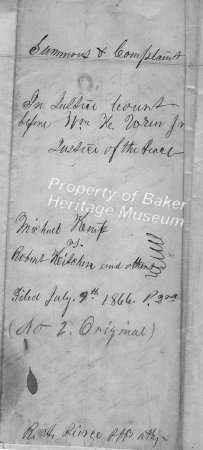 Summons & Complaint
In Justice Court
before Wm H.
Justice of the Peace
Property of Baker
Heritage Museum
Michael Kemp
vs.
Robert Kitchen and others
Filed July 9th 1866.
(No 2. Original)
R. A. Pierce Plff atty